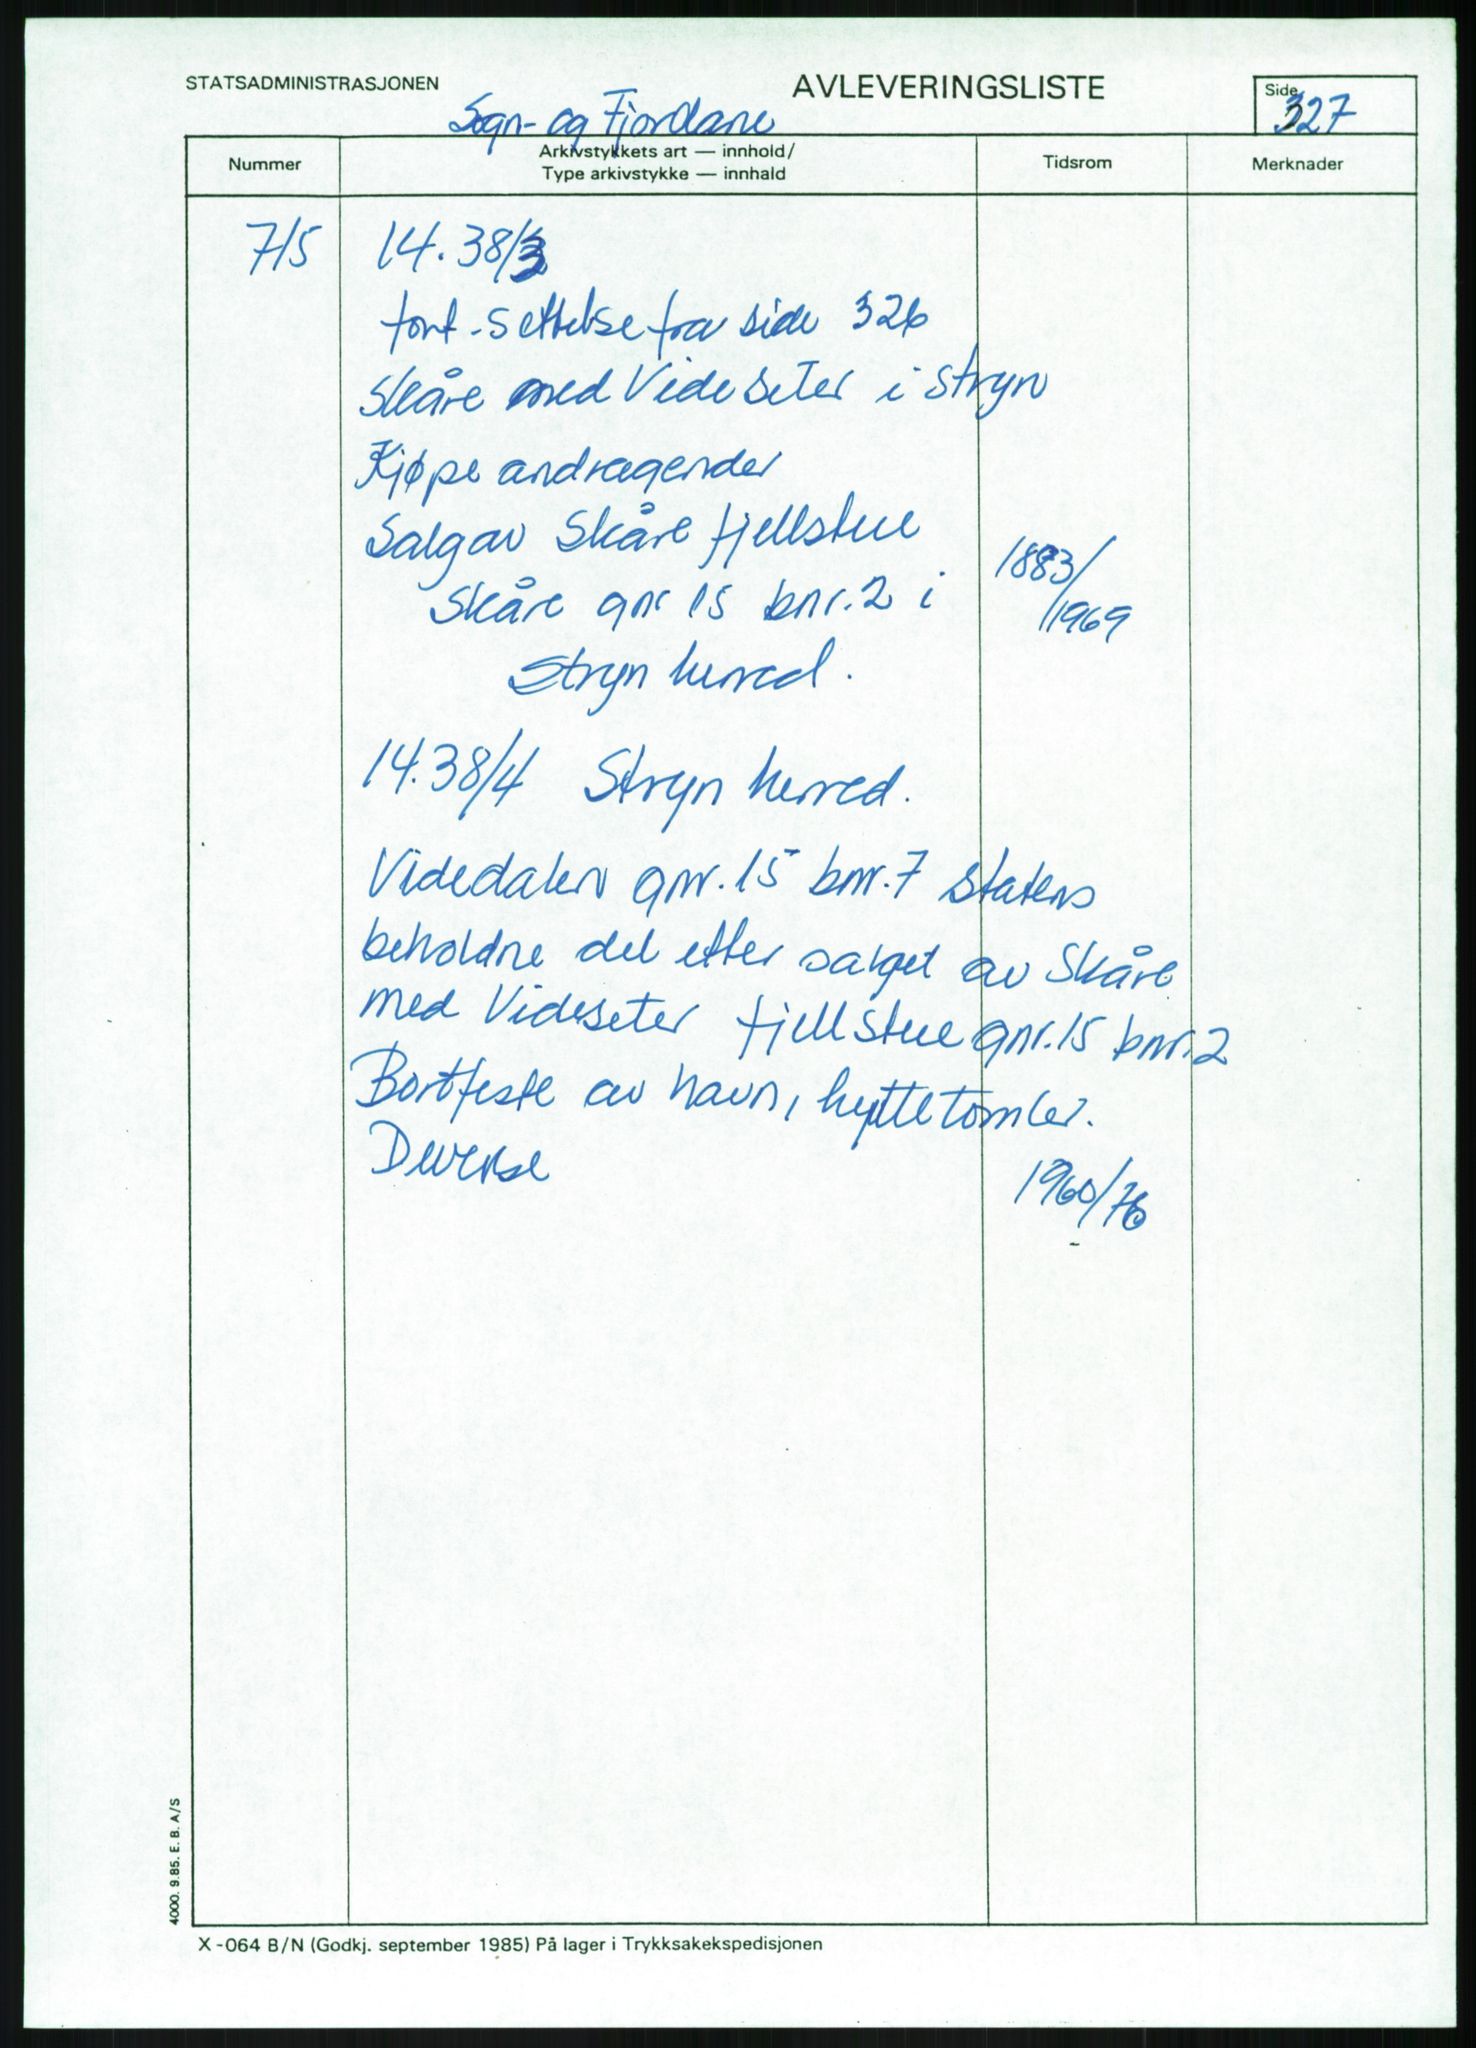 STATSADMINISTRASJONEN
AVLEVERINGSLISTE
Side
327
Sogn- og Fjordane
Nummer
Arkivstykkets art — innhold/
Type arkivstykke — innhald
Tidsrom
Merknader
7/5
14.38/3
fort-settelse fra side 326
Skåre med Videseter i Stryn
Kjøpe andragender
Salg av Skåre fjellstue
Skåre gnr 15 bnr.2 i
1883/
/1969
Stryn herred.
14.38/4 Stryn herred.
Videdalen gnr.15 bnr.7 statens
beholdne del etter salget av Skåre
med Videseter fjellstue gnr.15 bnr.2
Bortfeste av havn, hyttetomter.
Diverse
1960/76
4000. 9.85. E. B. A/S
X-064 B/N (Godkj. september 1985) På lager i Trykksakekspedisjonen